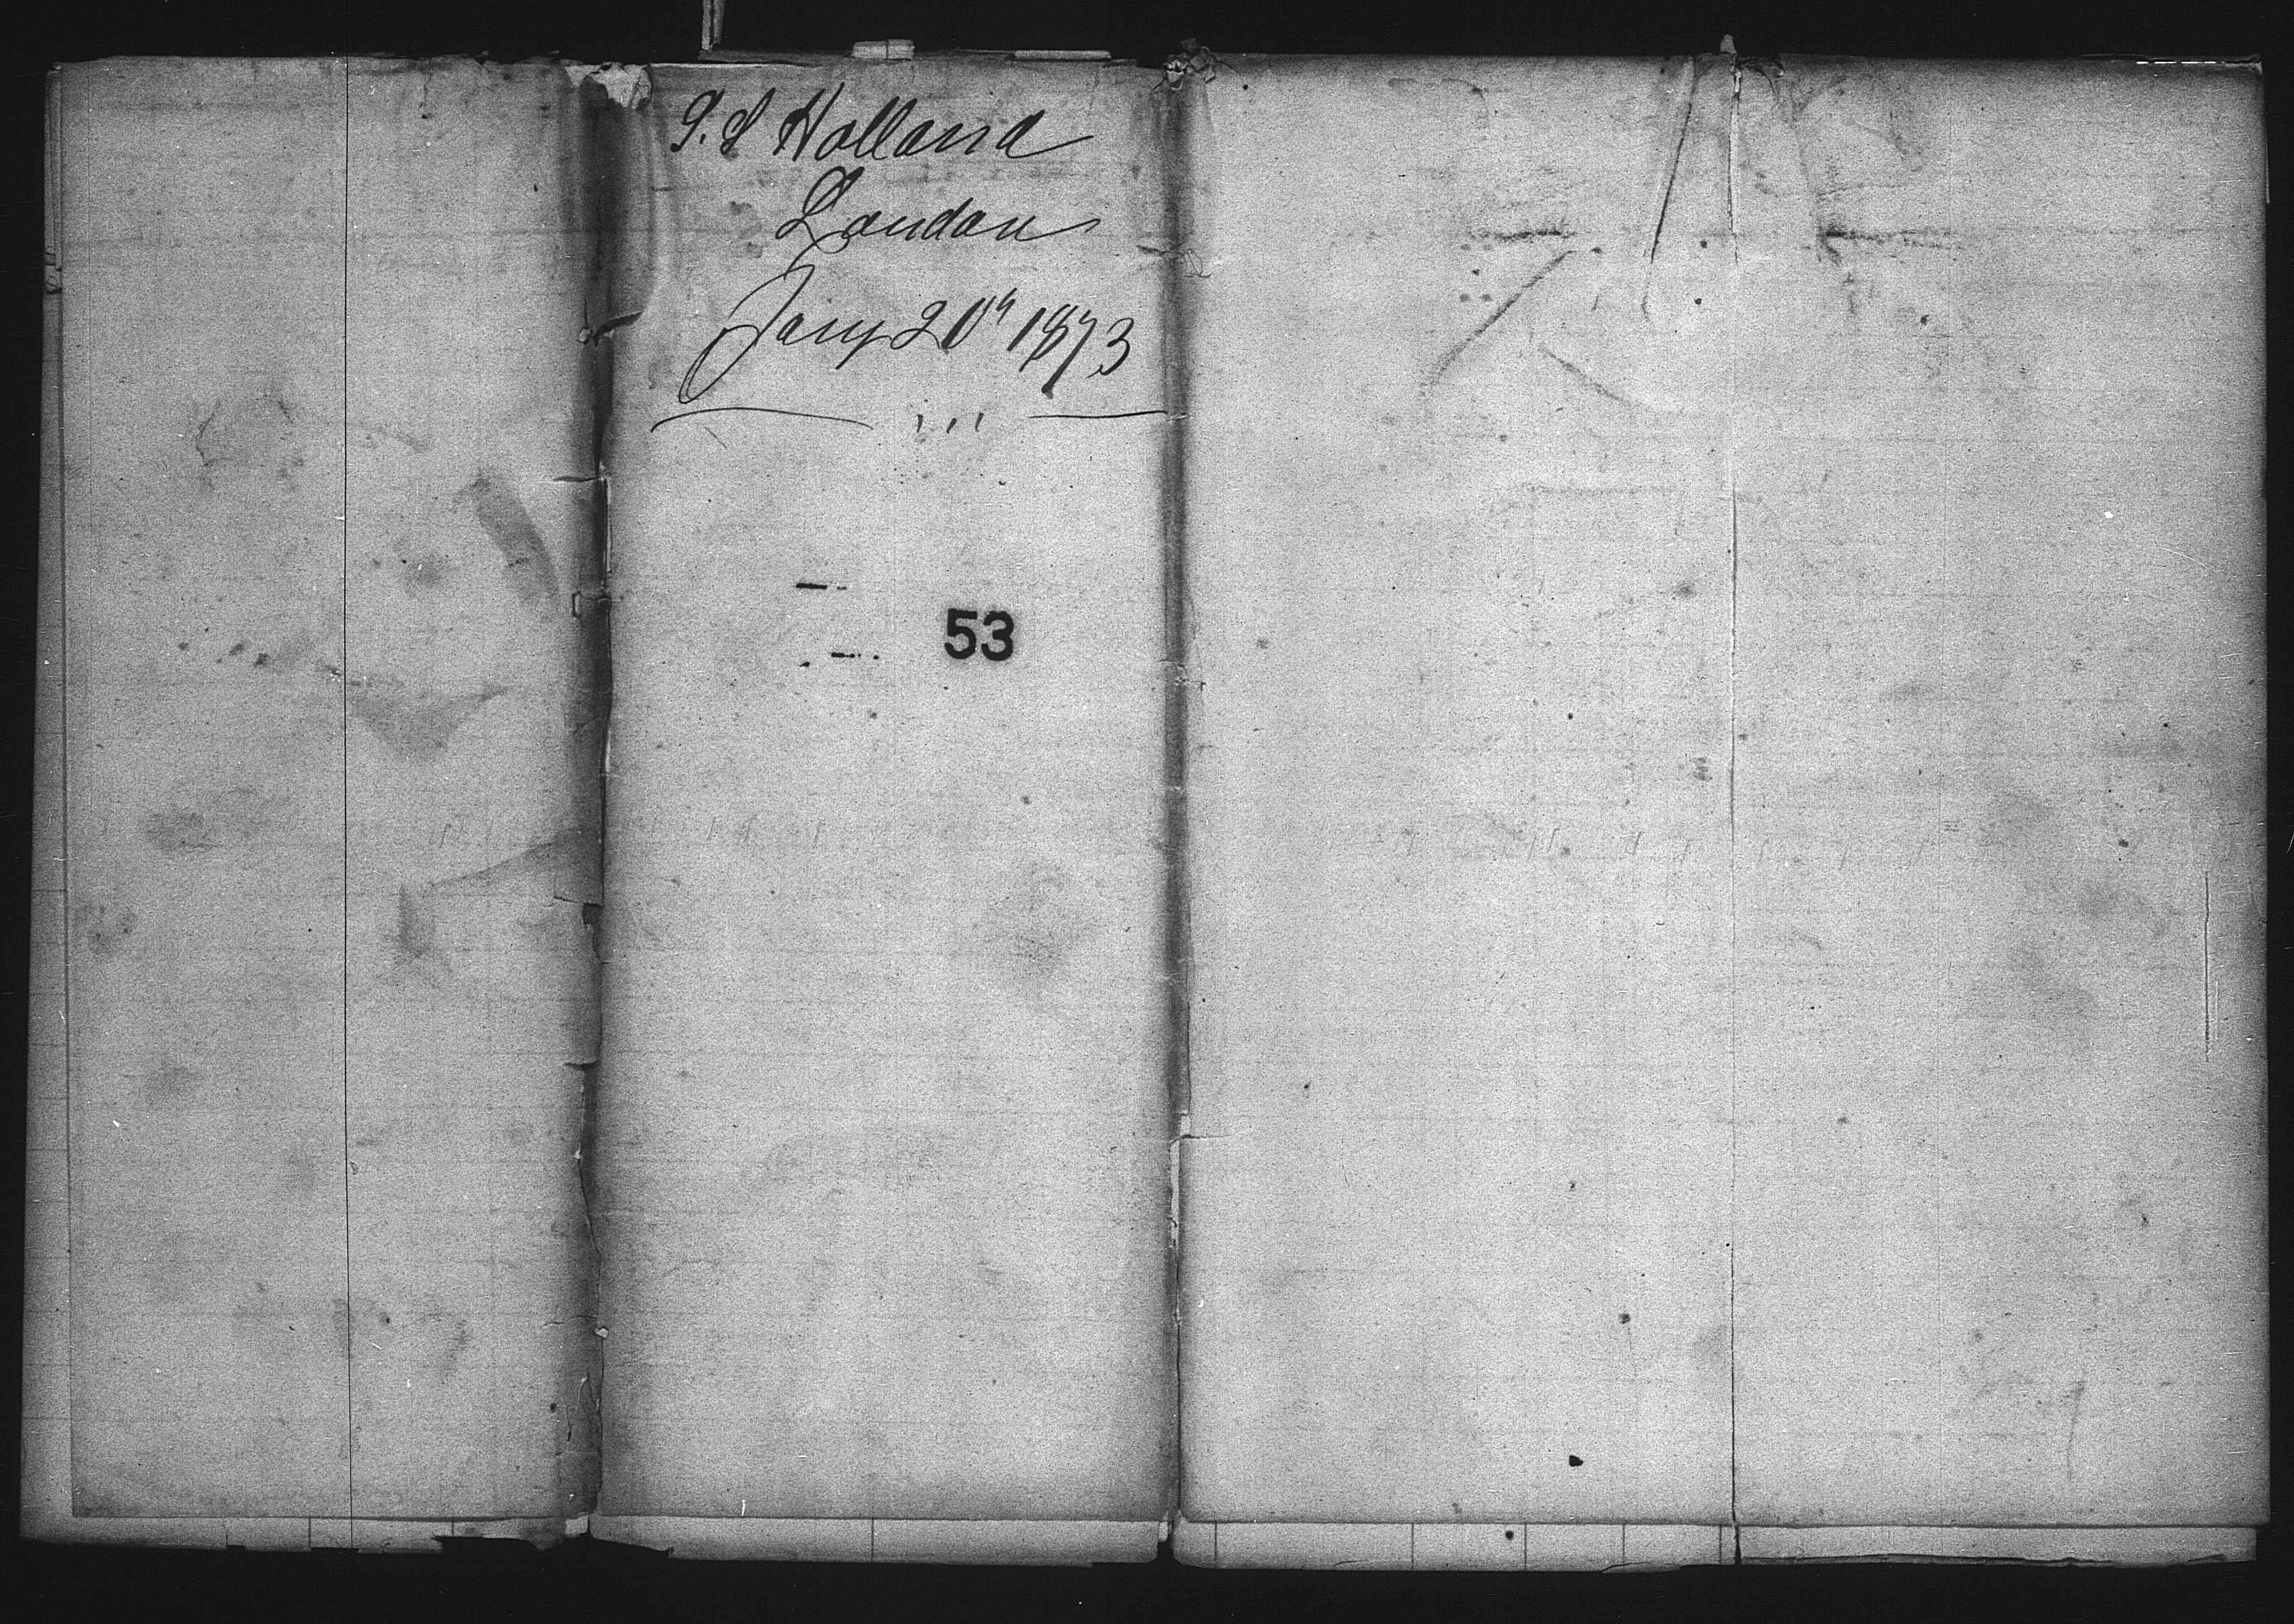 G. S Holland
London
Jany 20th 1873
53